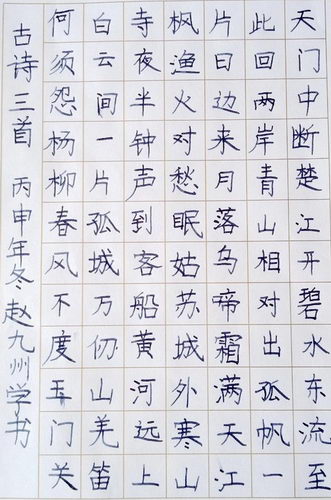 天门中断楚江开碧水东流至
此回两岸青山相对出孤帆一
片日边来月落乌啼霜满天江
枫渔火对愁眠姑苏城外寒山
寺夜半钟声到客船黄河远上
白云间一片孤城万仞山羌笛
何须怨杨柳春风不度玉门关
古诗三首 丙申年冬赵九州学书